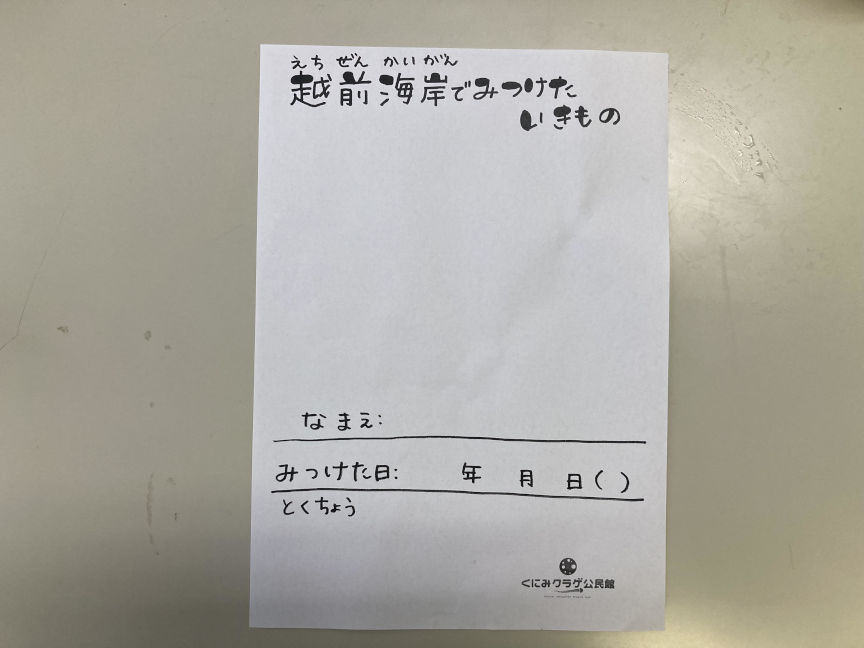 えち ぜん かい がん
越前海岸でみつけた
いきもの
なまえ:
みつけた日: 年 月 日( )
とくちょう
くにみクラゲ公民館